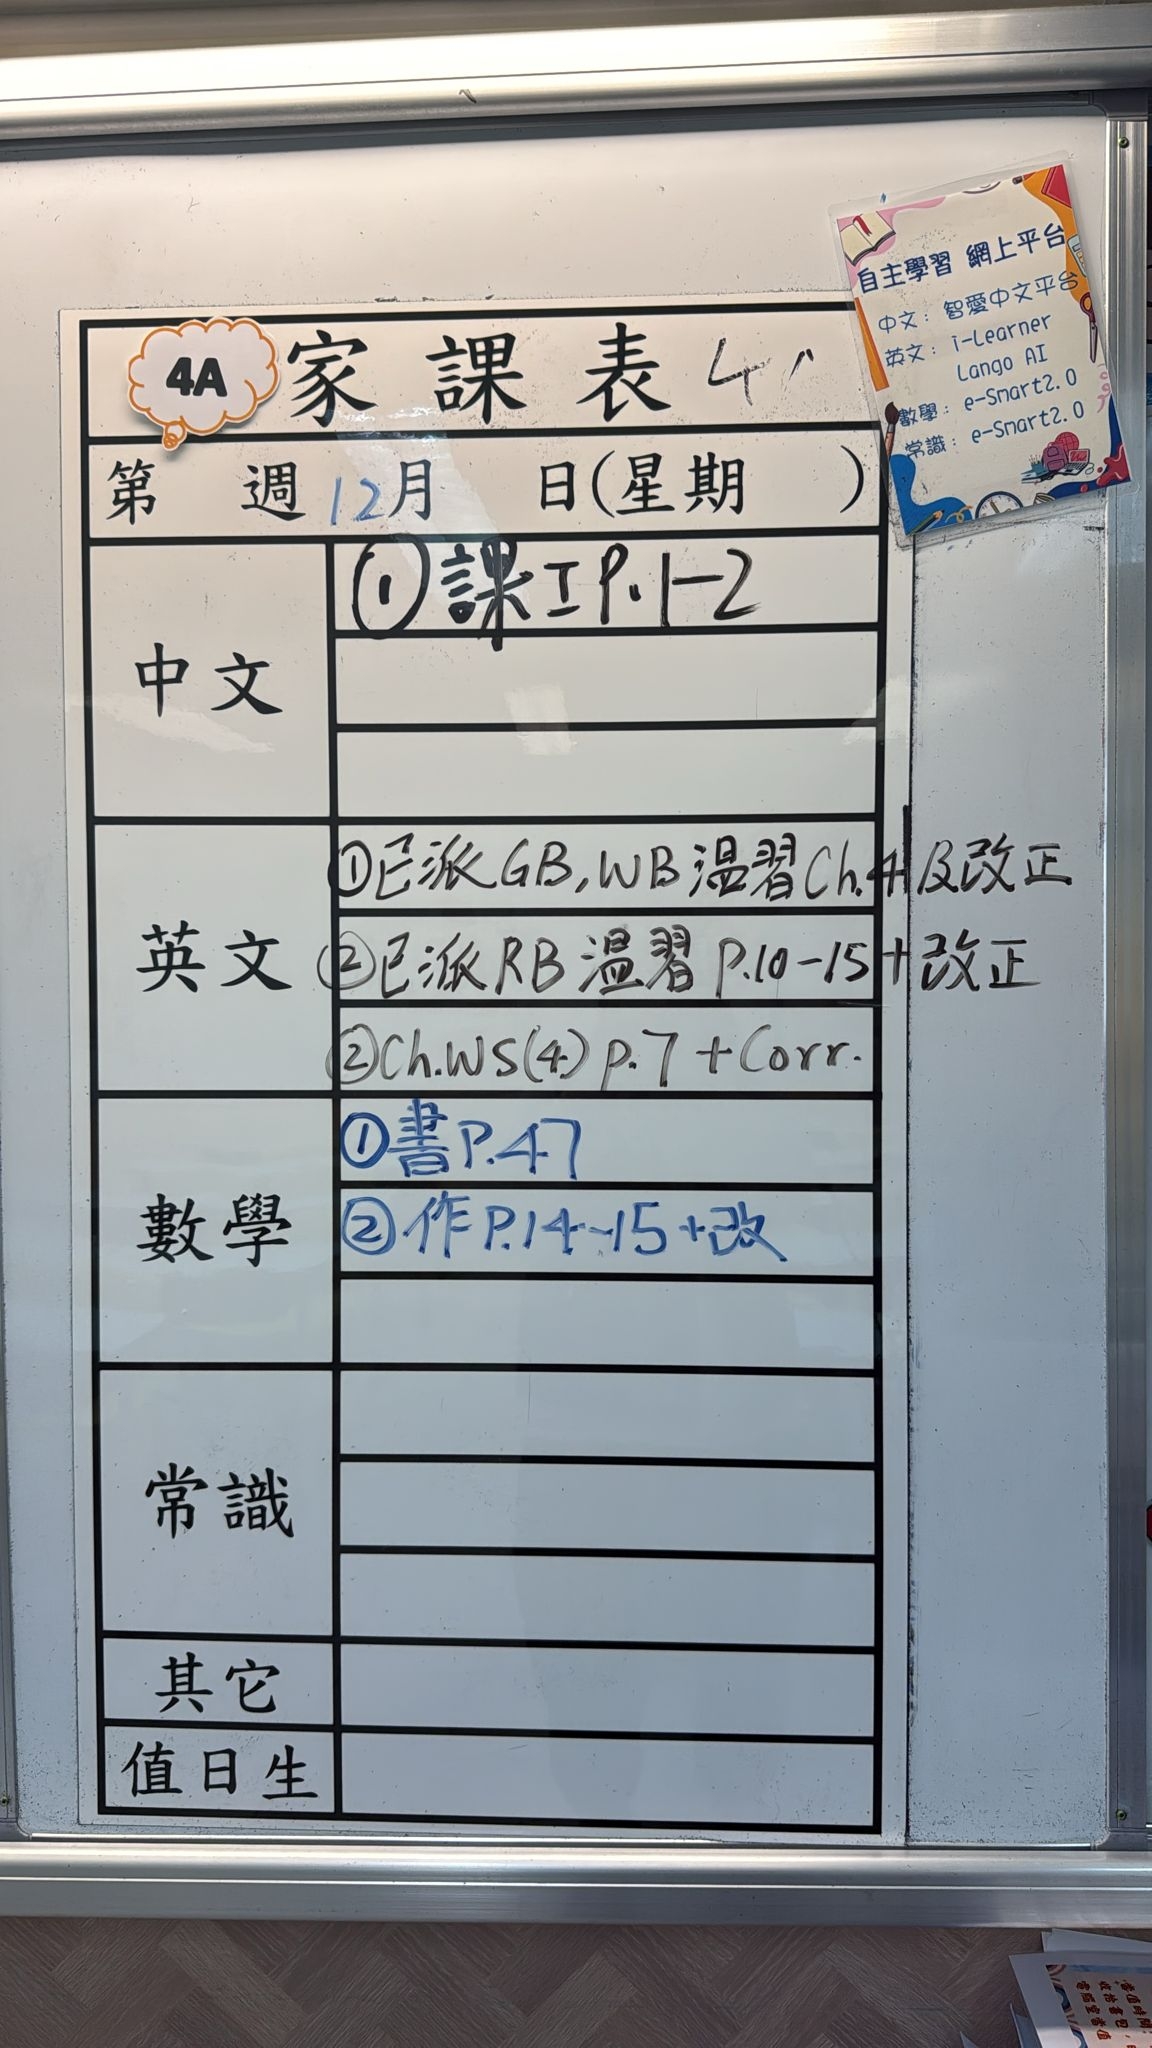 自主學習 網上平台
中文：智愛中文平台
英文：i-Learner
Lango AI
數學：e-Smart2.0
常識：e-Smart2.0
4A 家課表
第 週 12月 日(星期 )
中文
①課工P.1-2
英文
①已派GB,WB溫習Ch.4及改正
②已派RB溫習P.10-15+改正
②Ch.WS(4)p.7+Corr.
數學
①書P.47
②作P.14-15+改
常識
其它
值日生